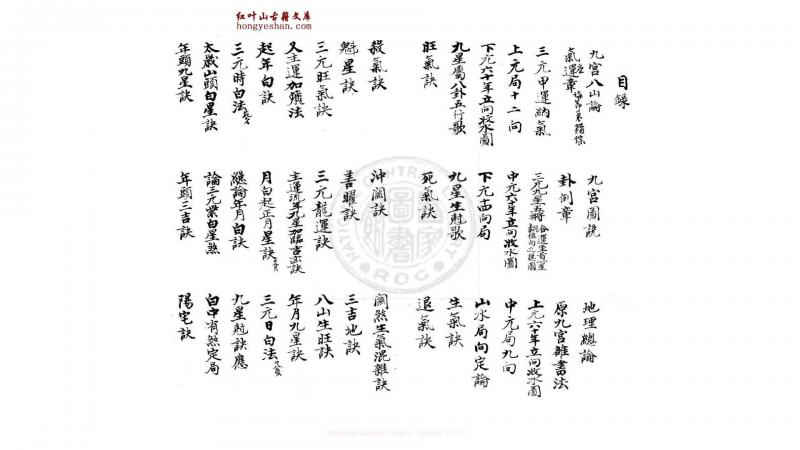 红叶山古籍文库
hongyeshan.com
目錄
九宮八山論
九宮圖說
地理總論
氣運章
卦例章
原九宮雒書法
三元甲運納氣
三元九星五將
上元六十年立向收水圖
上元局十二向
中元六十年立向收水圖
中元局九向
下元六十年立向收水圖
下元向局
山水局向定論
九星屬八卦五行歌
九星生尅歌
生氣訣
旺氣訣
死氣訣
退氣訣
殺氣訣
沖關訣
關煞生氣混雜訣
魁星訣
善曜訣
三吉地訣
三元旺氣訣
三元龍運訣
八山生旺訣
又主運加飛法
主運流年九星加臨吉凶訣
年月九星訣
起年白訣
月白起正月星訣
三元日白法
三元時白法
總論年月白訣
九星尅訣應
太歲山頭白星訣
論三元紫白星煞
白中有煞定局
年頭九星訣
年頭三吉訣
陽宅訣
National Central Library, Taiwan, R.O.C.